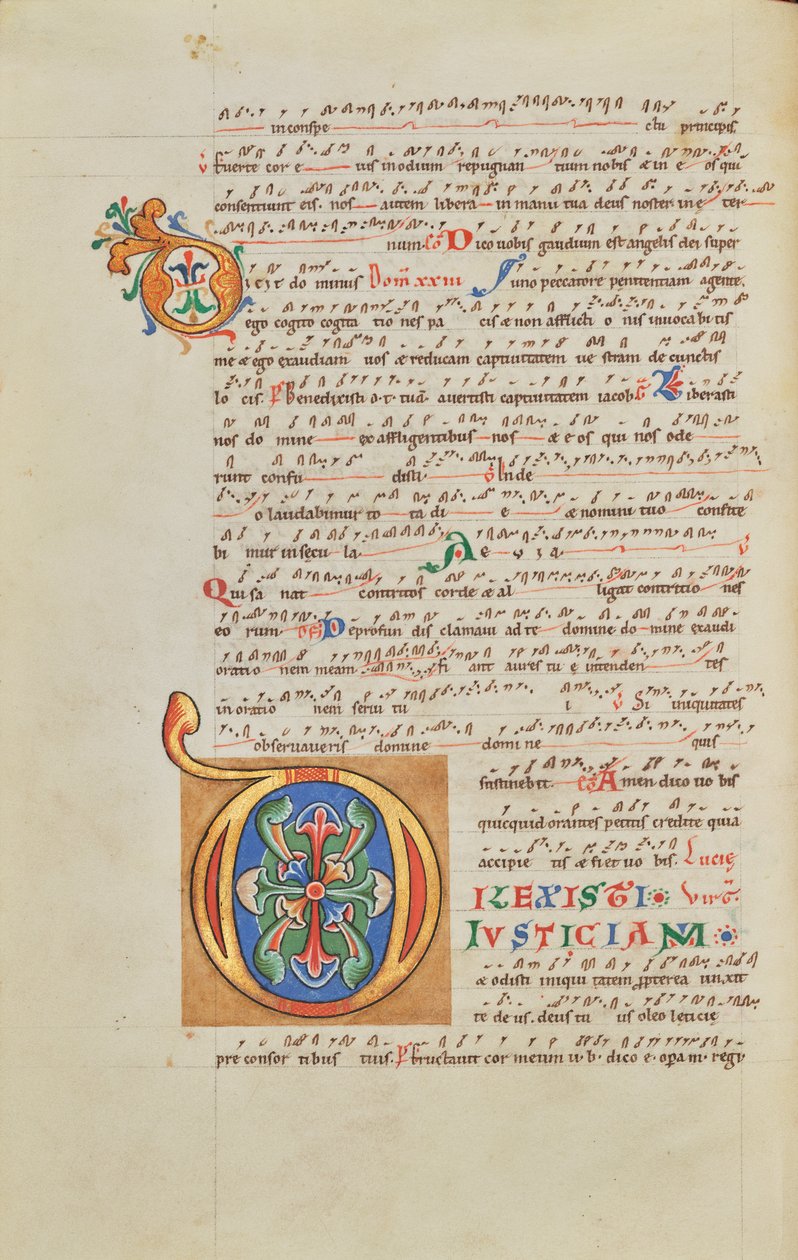 in conspe ctu principis.
v fuerte cor e ius in odium repugnan tium nobis & in e os qui
consentiunt eis. nos autem libera in manu tua deus noster in ę ter
num. Co Dico uobis gaudium est angelis dei super
Dicit do minus Dom̅ XXIII Iuno peccatore penitentiam agente.
ego cogito cogita tio nes pa cis & non afflicti o nis inuocabitis
me & ego exaudiam uos & reducam captiuitatem ue stram de cunctis
lo cis. Ps Benedixisti d. t. tuā. auertisti captiuitatem iacob. Gr Liberasti
nos do mine ex affligentibus nos & e os qui nos ode
runt confu disti. v In de
o laudabimur to ta di e & nomini tuo confite
bi mur in sęcu la. Ae v i a v
Qui sa nat contritos corde & al ligat contritio nes
eo rum. Of De profun dis clamaui ad te domine do mine exaudi
oratio nem meam fi ant aures tu ę intenden tes
in oratio nem serui tu i v Si iniquitates
obseruaueris domine domi ne quis
sustinebit. Co Amen dico uo bis
quicquid orantes petitis credite quia
accipie tis & fiet uo bis. Lucię
DILEXISTI Virg̅.
IVSTICIAM
& odisti iniqui tatem propterea unxit
te de us. deus tu us oleo lęticię
pre consor tibus tuis. Ps Eructauit cor meum u. b. dico e. opa m. regi